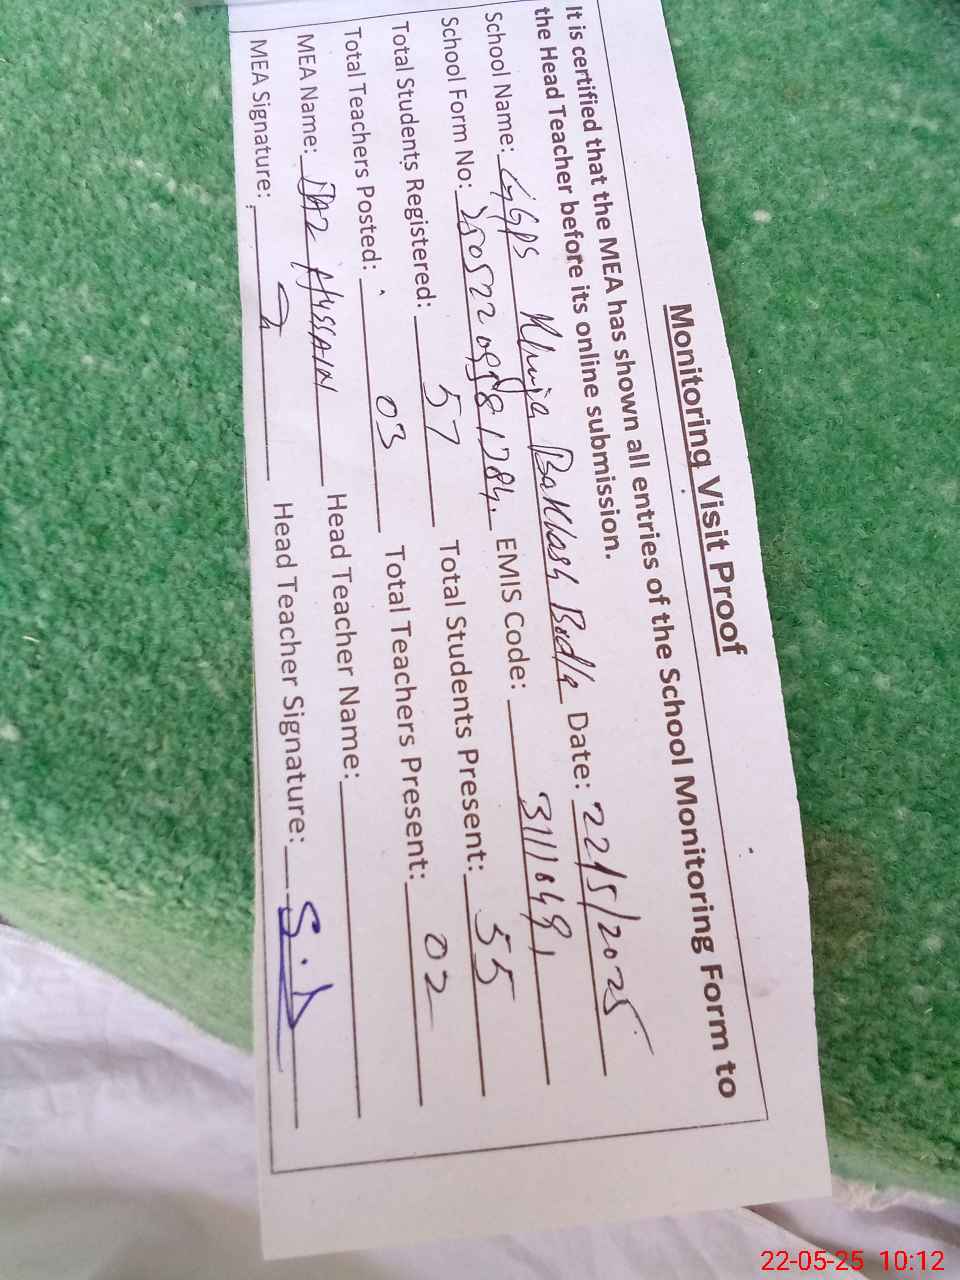 Monitoring Visit Proof
It is certified that the MEA has shown all entries of the School Monitoring Form to
the Head Teacher before its online submission.
School Name: GGPS Khuja Bakhash Bodla Date: 22/5/2025
School Form No: EMIS Code:
Total Students Registered: 57 Total Students Present: 55
Total Teachers Posted: 03 Total Teachers Present: 02
MEA Name: HUSSAIN Head Teacher Name:
MEA Signature: Head Teacher Signature:
22-05-25 10:12